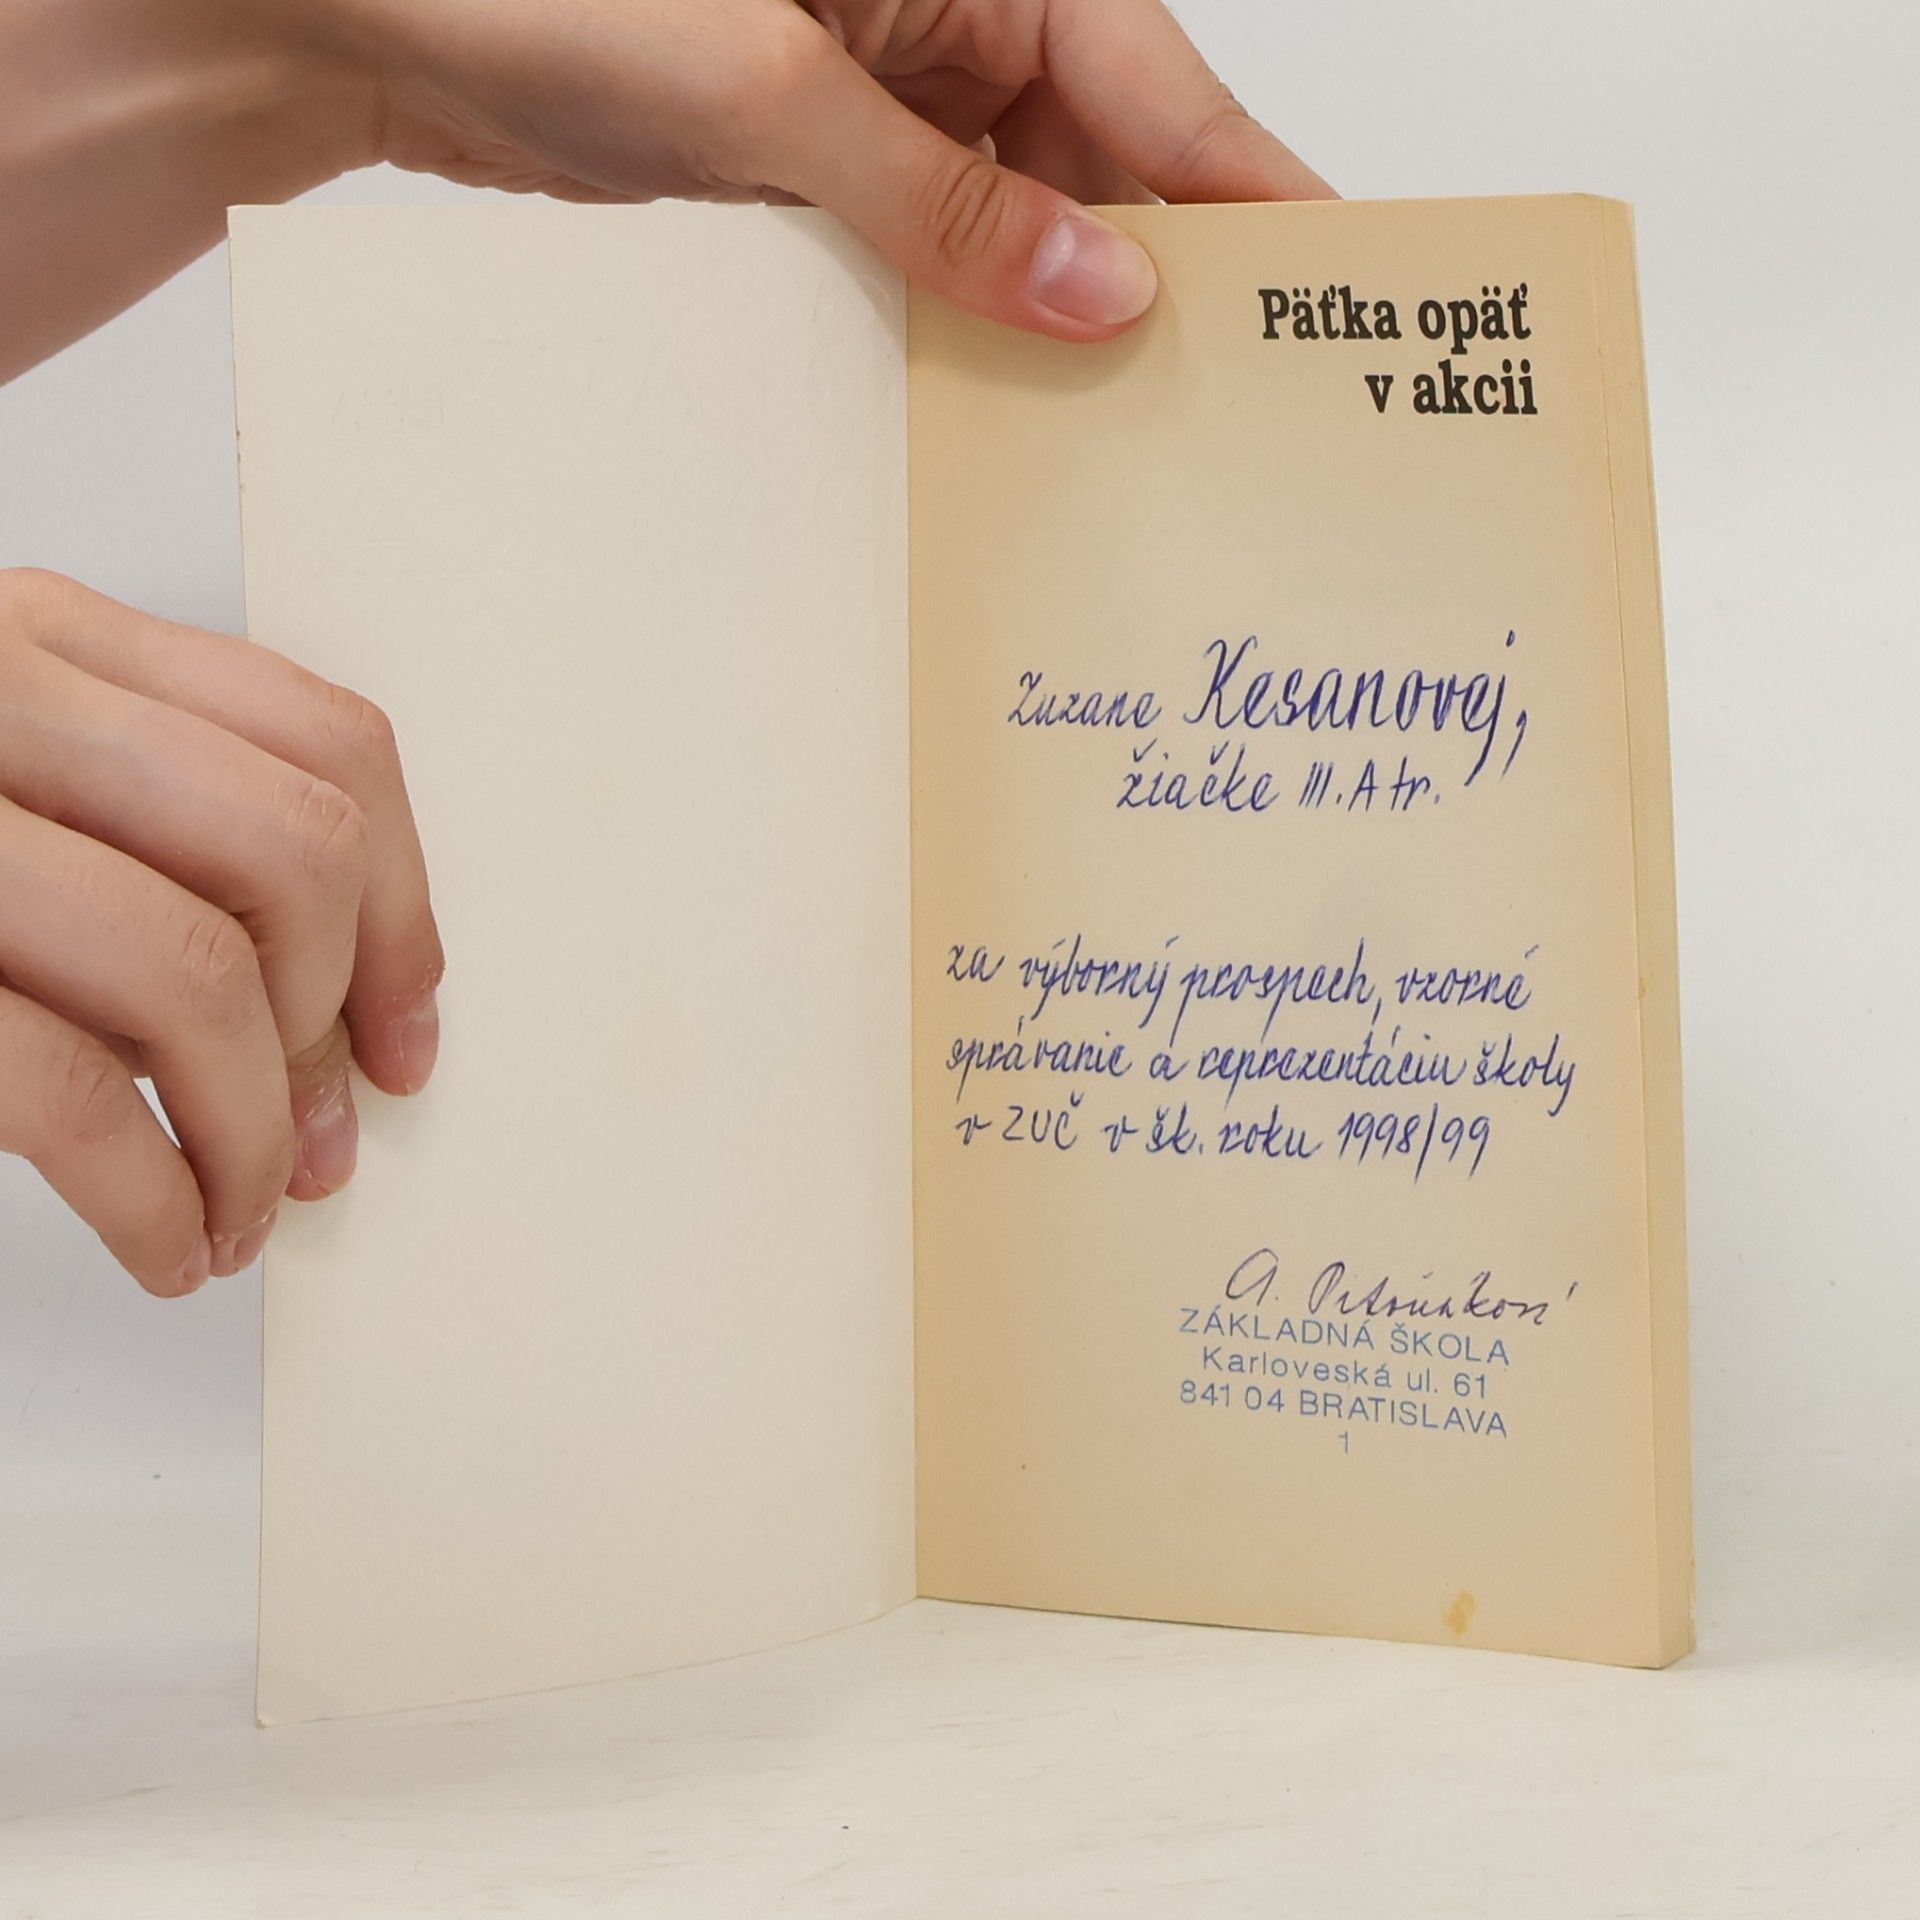 Päťka opäť
v akcii
Zuzane Kesanovej,
žiačke III. A tr.
za výborný prospech, vzorné
správanie a reprezentáciu školy
v ZUČ v šk. roku 1998/99
A.
ZÁKLADNÁ ŠKOLA
Karloveská ul. 61
841 04 BRATISLAVA
1